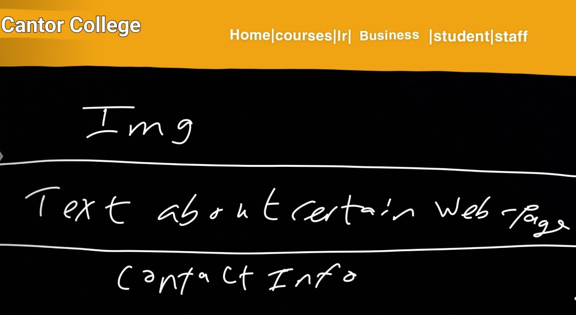 Cantor College
Home|courses|Ir| Business |student|staff
Img
Text about certain Web-Page
Contact Info